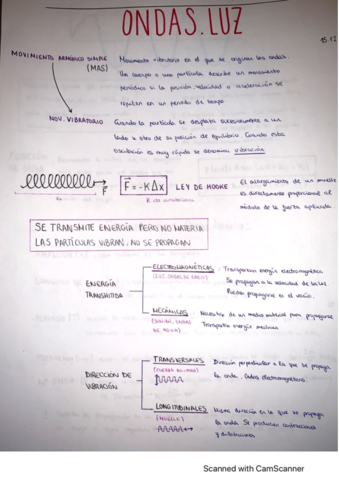 ONDAS.LUZ
15.12
MOVIMIENTO ARMÓNICO SIMPLE
(MAS)
Movimiento vibratorio en el que se originan las ondas.
Un cuerpo o una partícula describe un movimiento
periódico si la posición, velocidad y aceleración se
repiten en un periodo de tiempo
MOV. VIBRATORIO
Cuando la partícula se desplaza sucesivamente a un
lado y otro de su posición de equilibrio. Cuando esta
oscilación es muy rápida se denomina vibración
F
F = -KΔx
LEY DE HOOKE
El alargamiento de un muelle
es directamente proporcional al
módulo de la fuerza aplicada
SE TRANSMITE ENERGÍA PERO NO MATERIA
LAS PARTÍCULAS VIBRAN, NO SE PROPAGAN
ENERGÍA
TRANSMITIDA
ELECTROMAGNÉTICAS
Transportan energía electromagnética
Se propagan a la velocidad de la luz
Pueden propagarse en el vacío.
MECÁNICAS
Necesitan de un medio material para propagarse
Transporta energía mecánica
DIRECCIÓN DE
VIBRACIÓN
TRANSVERSALES
Dirección perpendicular a la que se propaga
la onda. Ondas electromagnéticas
LONGITUDINALES
(MUELLE)
Misma dirección en la que se propaga
la onda. Se producen contracciones
y dilataciones
Scanned with CamScanner